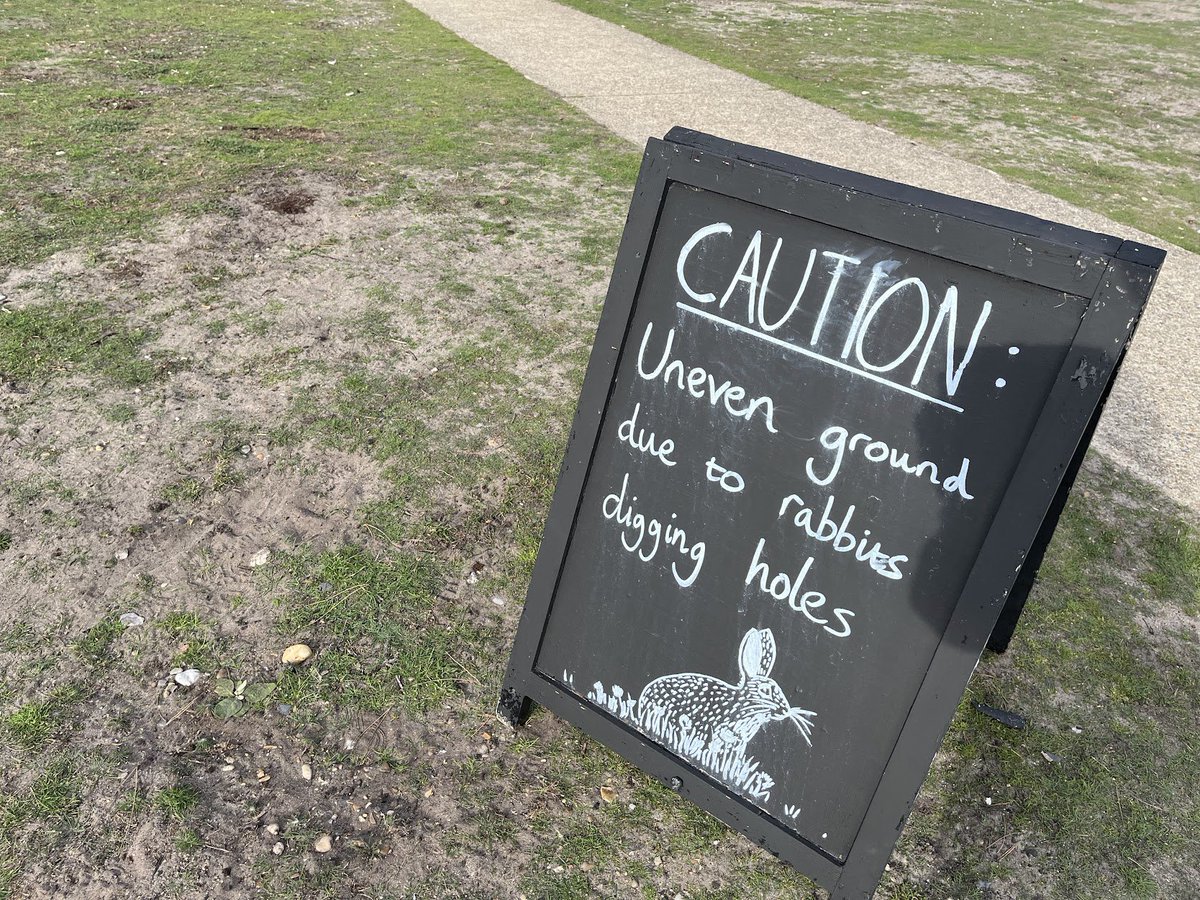 CAUTION:
Uneven ground
due to rabbits
digging holes